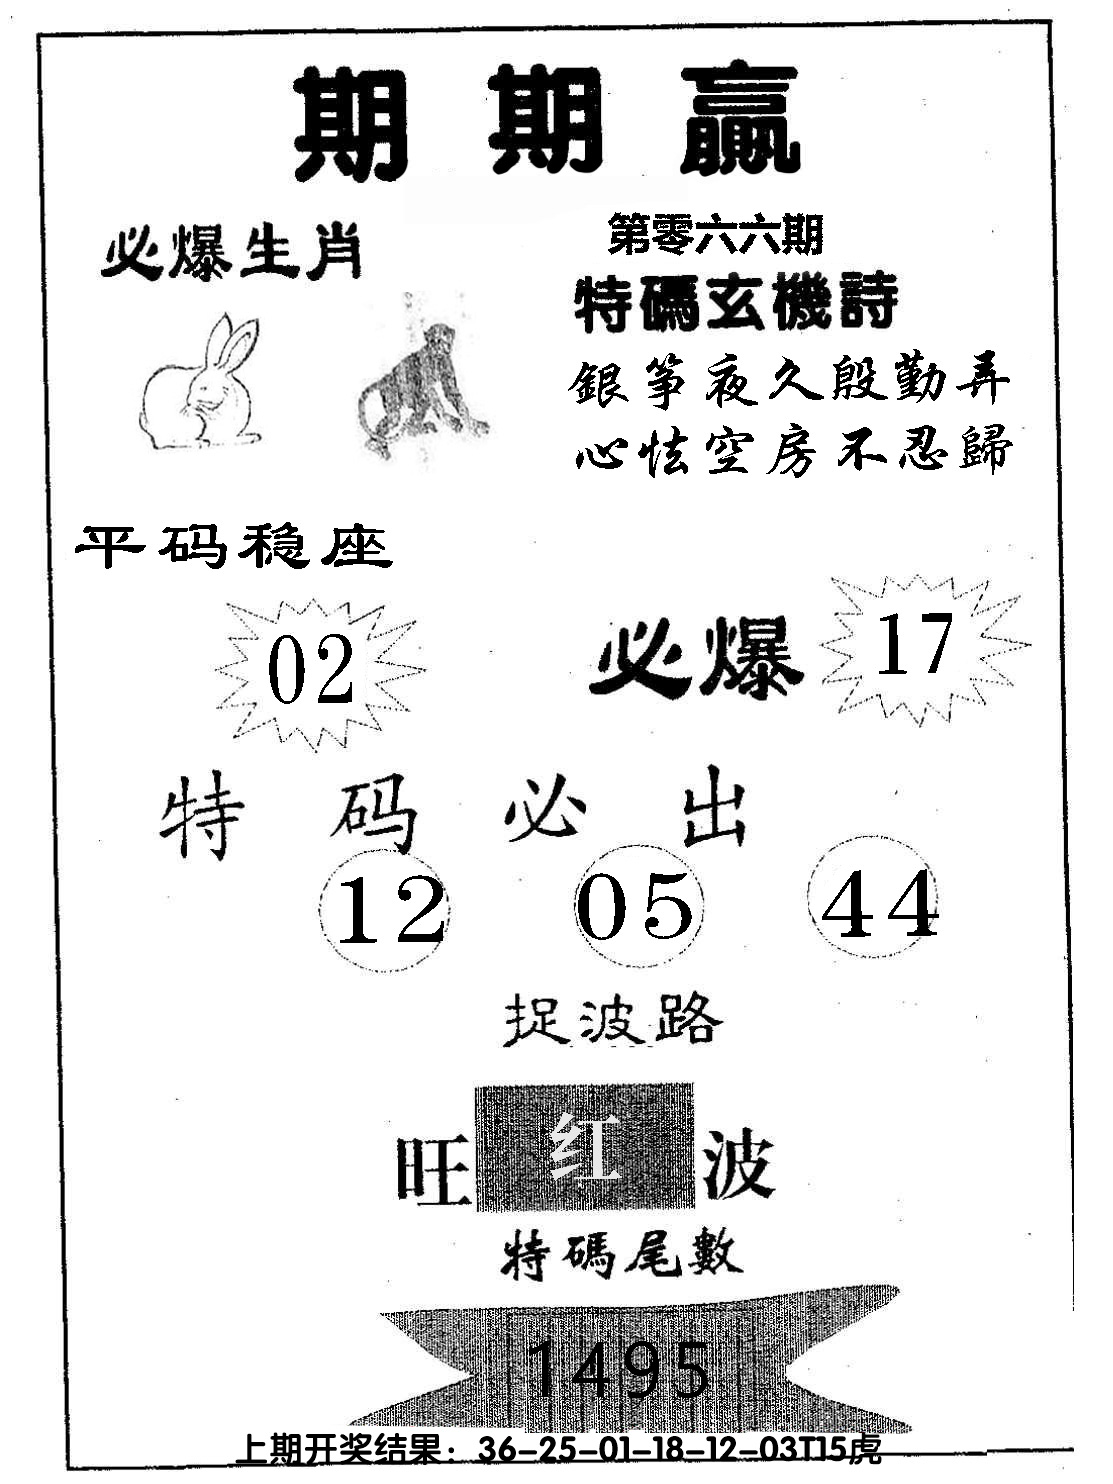 期期赢
必爆生肖
第零六六期
特碼玄機詩
銀筝夜久殷勤弄
心怯空房不忍歸
平码稳座
02
必爆 17
特码必出
12 05 44
捉波路
旺 红 波
特碼尾數
1495
上期开奖结果：36-25-01-18-12-03T15虎